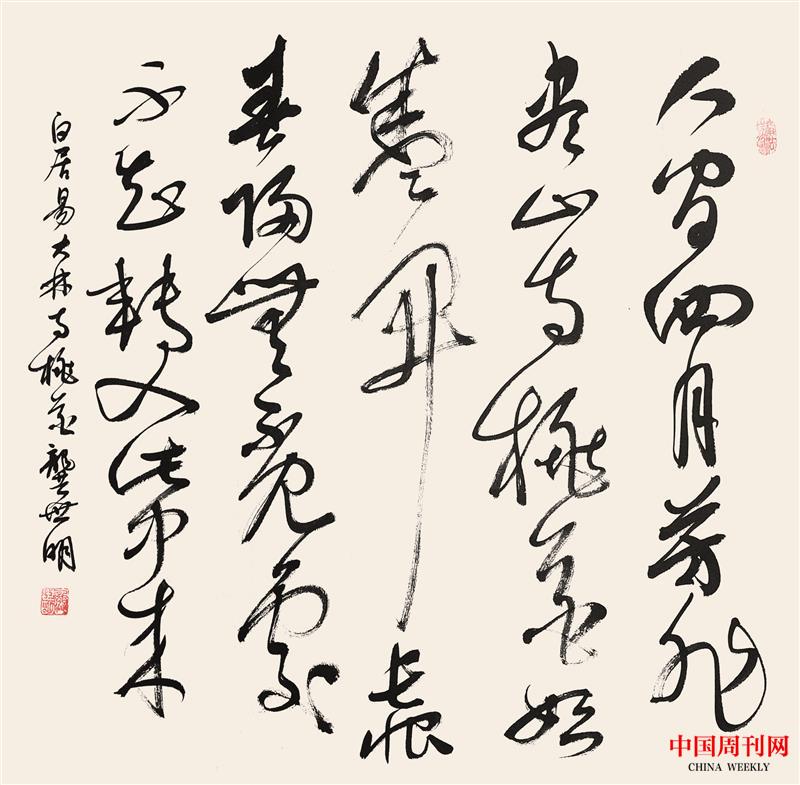 人間四月芳菲
盡山寺桃花始
盛開長恨
春歸無覓處
不知轉入此中來
白居易大林寺桃花龔世明
中国周刊网
CHINA WEEKLY